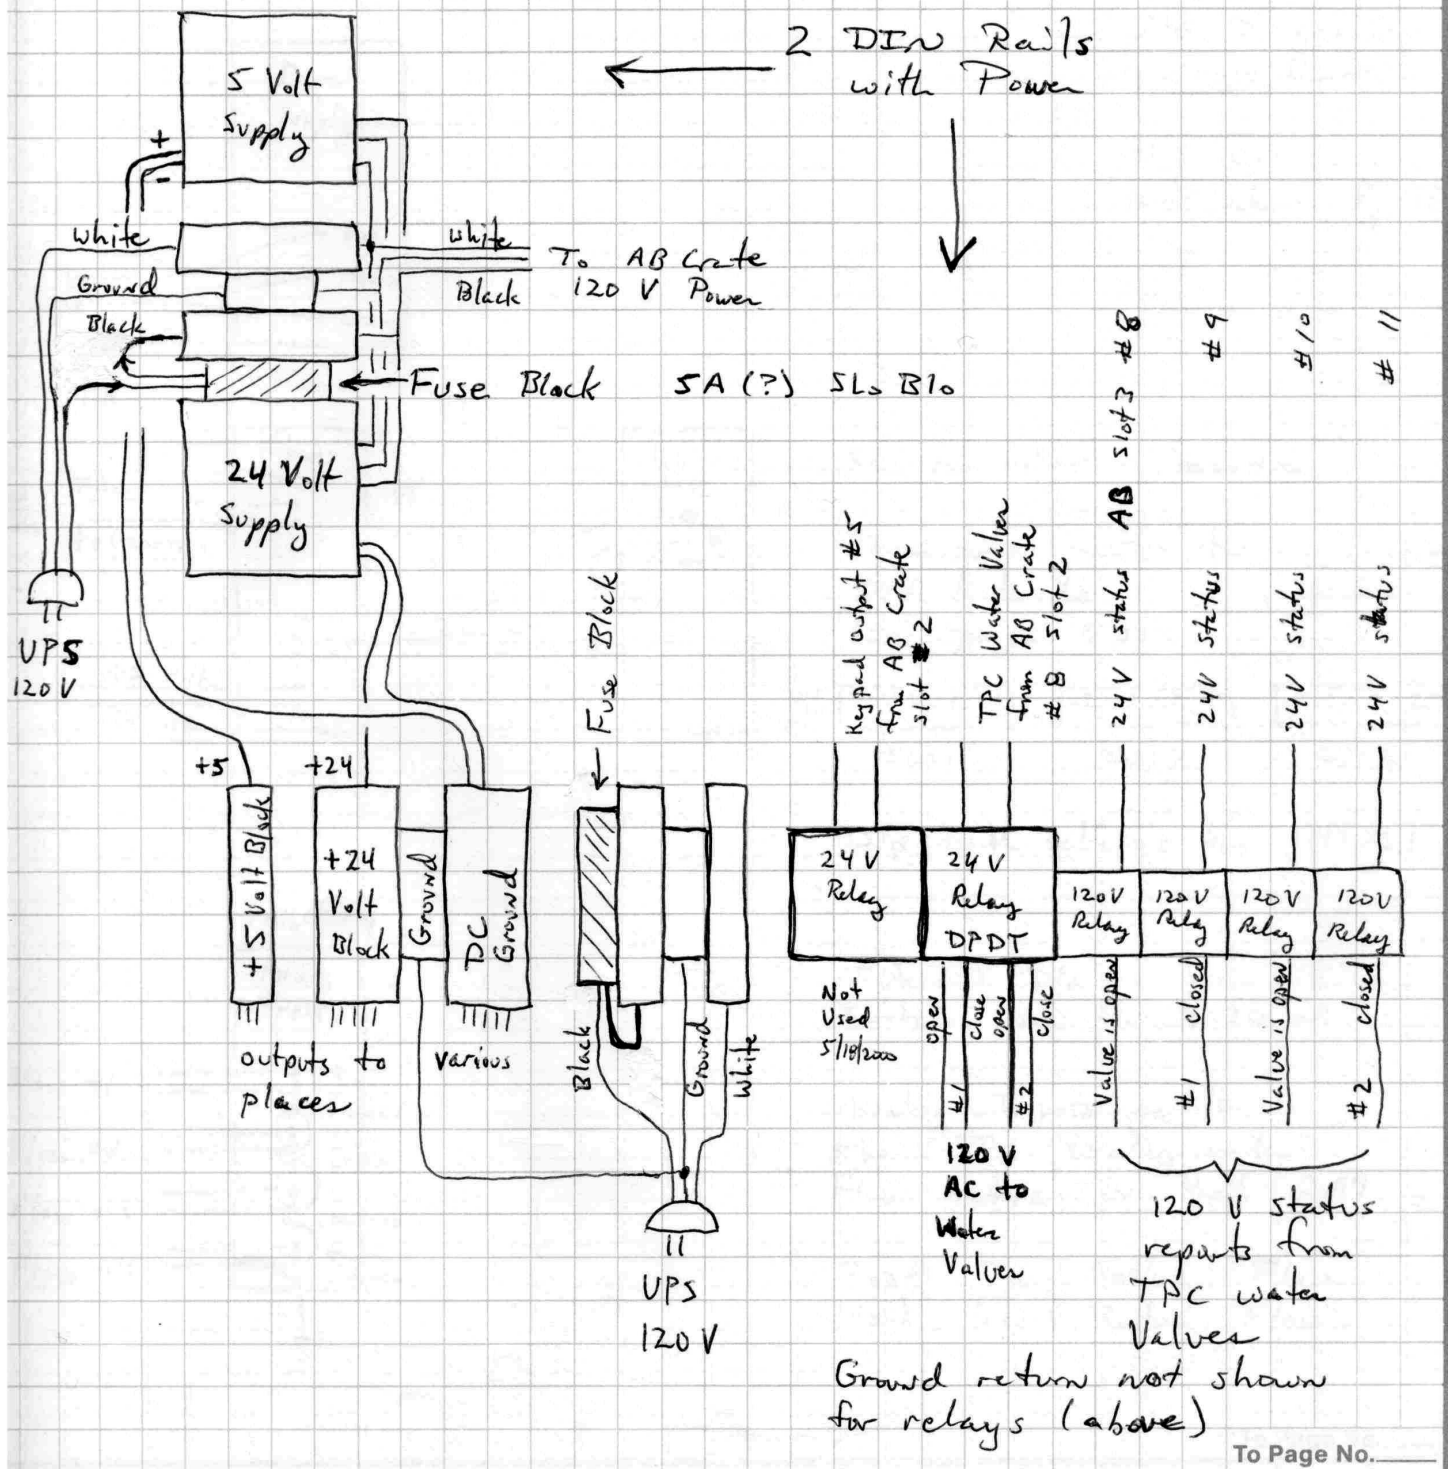 2 DIN Rails
with Power
5 Volt
Supply
+
-
White
Ground
Black
White
Black
To AB Crate
120 V Power
Fuse Block 5A (?) SLo Blo
24 Volt
Supply
UPS
120 V
+5
+24
+5 Volt Block
+24
Volt
Block
Ground
DC
Ground
outputs to various
places
Fuse Block
Black
Ground
White
UPS
120 V
Keypad output #5
from AB Crate
slot 2
TPC Water Valves
from AB Crate
#8 slot 2
24V status AB slot 3 #8
24V status #9
24V status #10
24V status #11
24V
Relay
24V
Relay
DPDT
120V
Relay
120V
Relay
120V
Relay
120V
Relay
Not
Used
5/18/2000
open
close
open
close
#1
#2
120 V
AC to
Water
Valves
Valve is open
#1 closed
Valve is open
#2 closed
120 V status
reports from
TPC water
Valves
Ground return not shown
for relays (above)
To Page No.